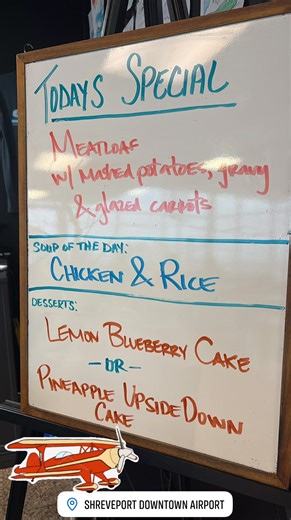 TODAYS SPECIAL
MEATLOAF
W/ MASHED POTATOES, GRAVY
& GLAZED CARROTS
SOUP OF THE DAY:
CHICKEN & RICE
DESSERTS:
LEMON BLUEBERRY CAKE
— OR —
PINEAPPLE UPSIDE DOWN
CAKE
SHREVEPORT DOWNTOWN AIRPORT